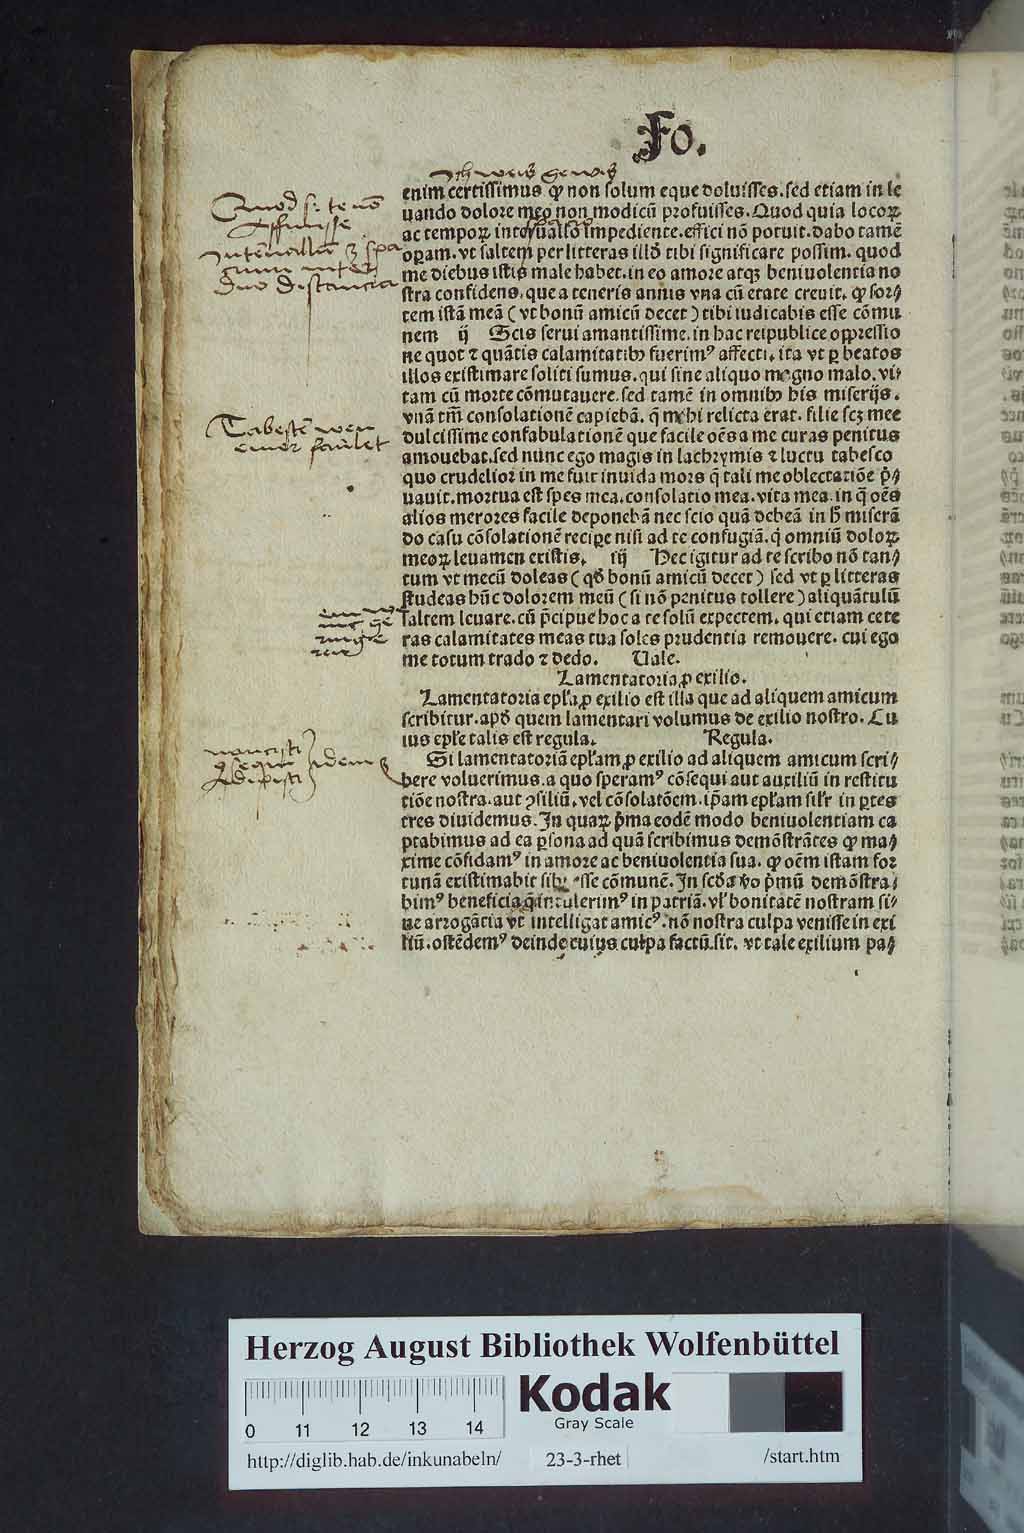 Fo.
Ich weis gewis
enim certissimus ꝙ non solum eque doluisses. sed etiam in le
uando dolore meo non modicũ profuisses. Quod quia locoꝝ
ac tempoꝝ interuallo impediente. effici nõ potuit. dabo tamẽ
oꝑam. vt saltem per litteras illď tibi significare possim. quod
me diebus istis male habet. in eo amore atqꝫ beniuolentia no
stra confidens. que a teneris annis vna cũ etate creuit. ꝙ sor⸗
tem istã meã ( vt bonũ amicũ decet ) tibi iudicabis esse cõmu
nem ij Scis serui amantissime. in hac reipublice oppressio
ne quot ⁊ quãtis calamitatibꝫ fuerimꝰ affecti. ita vt ꝑ beatos
illos existimare soliti sumus. qui sine aliquo magno malo. vi⸗
tam cũ morte cõmutauere. sed tamẽ in omnibꝫ his miserijs.
vnã tm̃ consolationẽ capiebã. q̃ mihi relicta erat. filie scꝫ mee
dulcissime confabulationẽ que facile oẽs a me curas penitus
amouebat. sed nunc ego magis in lachrymis ⁊ luctu tabesco
quo crudelior in me fuit inuida mors q̃ tali me oblectatiõe p̃⸗
uauit. mortua est spes mea. consolatio mea. vita mea. in q̃ oẽs
alios merores facile deponebã nec scio quã debeã in h̃ miserã
do casu cõsolationẽ recipe nisi ad te confugiã. q̇ omniũ doloꝝ
meoꝝ leuamen existis. iij Hec igitur ad te scribo nõ tan⸗
tum vt mecũ doleas ( qď bonũ amicũ decet ) sed vt ꝑ litteras
studeas hũc dolorem meũ ( si nõ penitus tollere ) aliquãtulũ
saltem leuare. cũ p̃cipue hoc a te solũ expectem. qui etiam cete
ras calamitates meas tua soles prudentia remouere. cui ego
me totum trado ⁊ dedo. Uale.
Lamentatoria ꝓ exilio.
Lamentatoria epl̃a ꝓ exilio est illa que ad aliquem amicum
scribitur. apď quem lamentari volumus de exilio nostro. Cu
ius epl̃e talis est regula. Regula.
Si lamentatoriã epl̃am ꝓ exilio ad aliquem amicum scri⸗
bere voluerimus. a quo speramꝰ cõsequi aut auxiliũ in restitu
tiõe nostra. aut ꝯsiliũ. vel cõsolatõem. ip̃am epl̃am sil̃r in ꝑtes
tres diuidemus. In quaꝝ p̃ma eodẽ modo beniuolentiam ca
ptabimus ad ea ꝑsona ad quã scribimus demõstrãtes ꝙ ma⸗
xime cõfidamꝰ in amore ac beniuolentia sua. ꝙ oẽm istam for
tunã existimabit sibi esse cõmunẽ. In scďa vo p̃mũ demõstra⸗
bimꝰ beneficia q̃ intulerimꝰ in patriã. vl̃ bonitatẽ nostram si⸗
ne arrogãtia vt intelligat amicꝰ. nõ nostra culpa venisse in exi
liũ. ostẽdemꝰ deinde cuius culpa factũ sit. vt tale exilium pa⸗
Quod si te nõ
Affuisse
Interuallũ est spa
cium inter
duo distancia
einer faulet
nancisci
ꝯsequi idem est
Adipisci
Herzog August Bibliothek Wolfenbüttel
0 11 12 13 14
Kodak
Gray Scale
http://diglib.hab.de/inkunabeln/ 23-3-rhet /start.htm